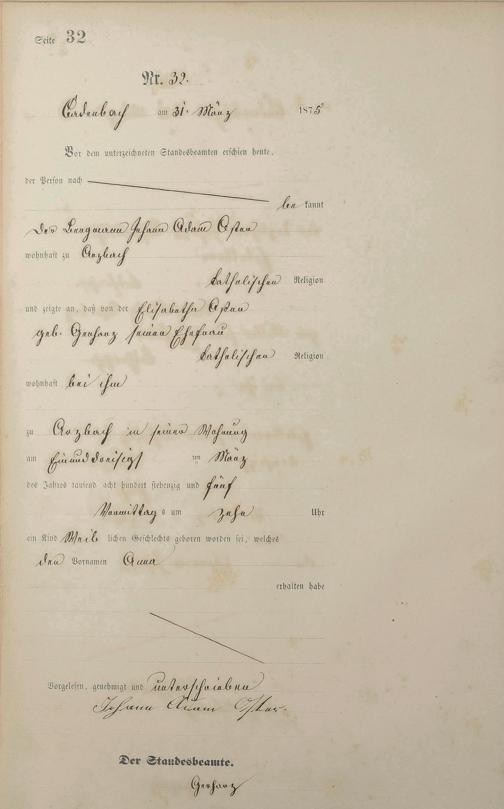 Seite 32
Nr. 32.
Cadenbach am 31. März 1875
Vor dem unterzeichneten Standesbeamten erschien heute,
der Person nach
be kannt
der Bergmann Johann Adam
wohnhaft zu Arzbach
katholischen Religion
und zeigte an, daß von der Elisabetha
geb. Gerharz seiner Ehefrau
katholischen Religion
wohnhaft bei ihm
zu Arzbach in seiner Wohnung
am Einunddreisigst en März
des Jahres tausend acht hundert siebenzig und fünf
Vormittag s um zehn Uhr
ein Kind Weib lichen Geschlechts geboren worden sei, welches
den Vornamen Anna
erhalten habe
Vorgelesen, genehmigt und unterschrieben
Johann Adam
Der Standesbeamte.
Gerharz